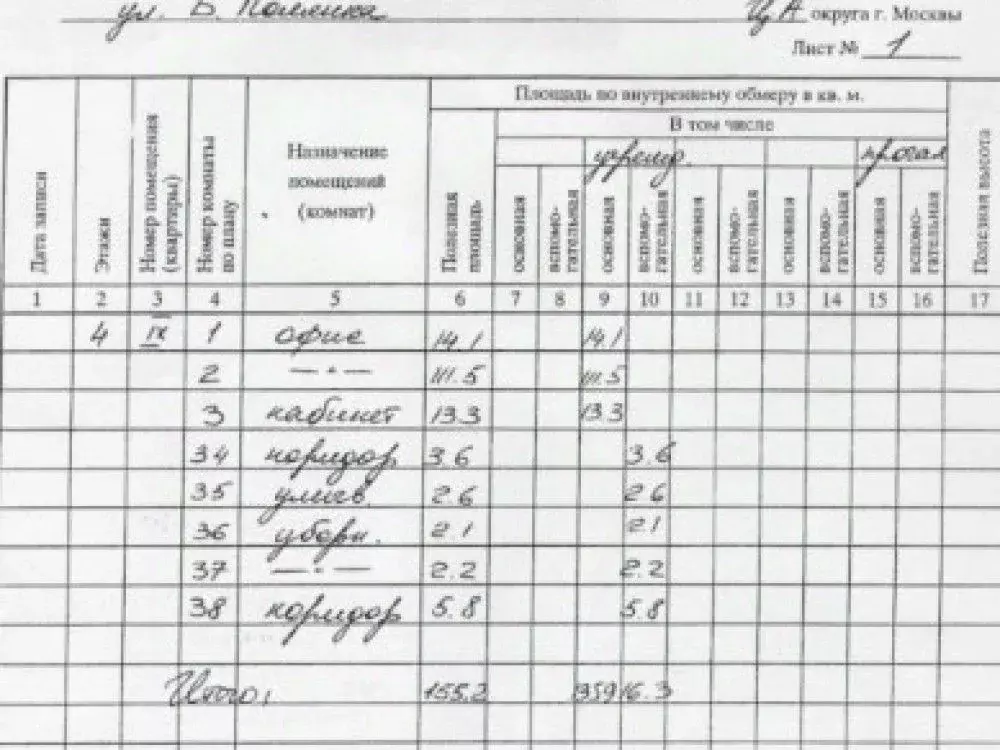 ул. Б. Полянка ЦА округа г. Москвы
Лист № 1
Дата записи Этажи Номер помещения (квартиры) Номер комнаты по плану Назначение помещений (комнат) Площадь по внутреннему обмеру в кв. м. Полезная высота
Полезная площадь В том числе
учрежд. прочая
основная вспомогательная основная вспомогательная основная вспомогательная основная вспомогательная основная вспомогательная
1 2 3 4 5 6 7 8 9 10 11 12 13 14 15 16 17
4 IX 1 офис 14.1 14.1
2 —"— 111.5 111.5
3 кабинет 13.3 13.3
34 коридор 3.6 3.6
35 умыв. 2.6 2.6
36 уборн. 2.1 2.1
37 —"— 2.2 2.2
38 коридор 5.8 5.8
Итого: 155.2 16.3